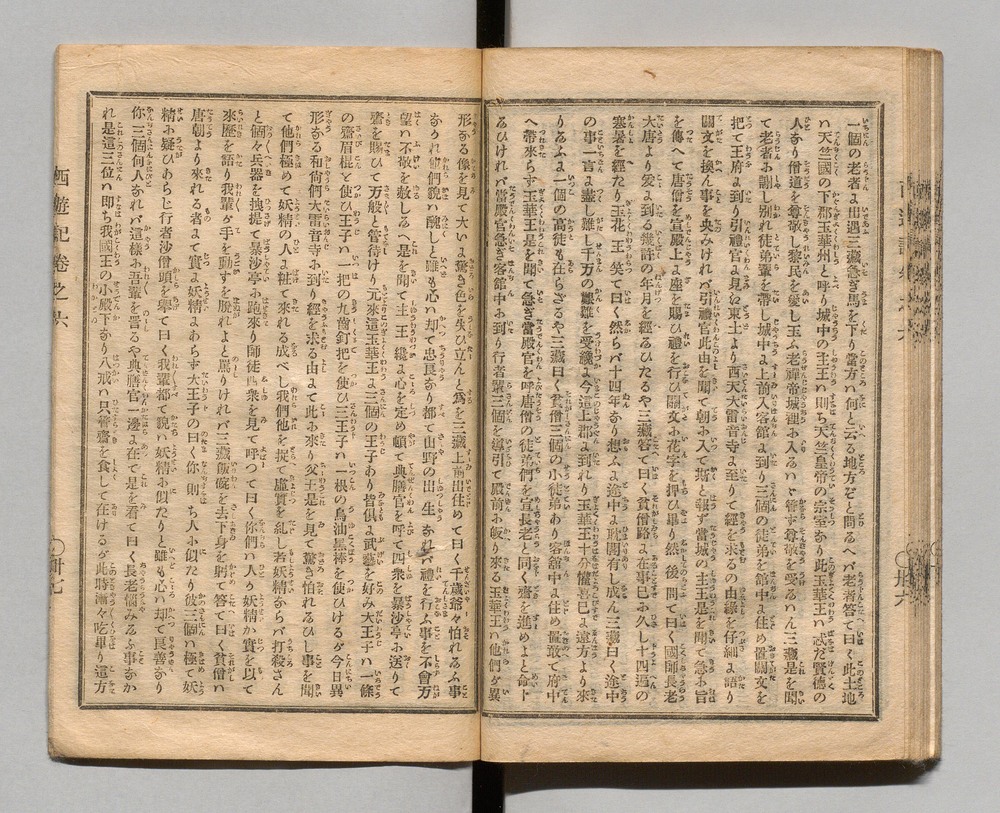 一個の老者に出遇三藏急ぎ馬を下り當方ハ何と云る地方ぞと問るへバ老者答て曰く此土地
ハ天竺國の下郡玉華州と呼り城中の主王ハ則ち天竺皇帝の宗室なり此玉華王ハ忒だ賢德の
人なり僧道を尊敬し黎民を愛し玉ふ老禪帝城裡に入るハヾ管ず尊敬を受るハん三藏是を聞
て老者に謝し別れ徒弟輩を帶し城中に上前入客館に到り三個の徒弟を館中に住め置關文を
把て王府に到り引禮官に見ね東土より西天大雷音寺に至りて經を求るの由緣を仔細に語り
關文を換ん事を央みけれバ引禮官此由を聞て朝に入て斯と報ず當城の主王是を聞て急に旨
を傳へて唐僧を宣殿上に座を賜ひ禮を行ひ關文に花字を押ひ畢り然して後問て曰く國師長老
大唐より爰に到る幾許の年月を經るひたるや三藏答へて曰く貧僧路に在事已に久し十四遍の
寒暑を經たり玉花王笑て曰く然らバ十四年なり想ふに途中に耽閣有し成ん三藏曰く途中
の事一言に盡し難し千万の艱難を受纔に今這上郡に到れり玉華王十分懽喜已に遠方より來
りるふに一個の高徒も在らざるや三藏曰く貧僧三個の小徒弟あり客舘中に住め置敢て府中
へ帶來らず玉華王是を聞て急ぎ當殿官を呼唐僧の徒弟們を宣長老と同く齋を進めよと命ト
るひけれバ當殿官急ぎ客館中に到り行者輩三個を導引て殿前に皈り來る玉華王ハ他們ダ異
形なる像を見て大いに驚き色を失ひ立んと爲を三藏上前出住めて曰く千歲爺々怕れるふ事
なかれ他們貌ハ醜しと雖も心ハ却て忠良なり都て山野の出生なれバ禮を行ふ事を不會万
望ハ不敬を赦しるへ是を聞て主王纔に心を定め頓て典膳官を呼て四衆を暴沙亭に送りて
齋を賜ひて万般と管待けり元來這玉華王に三個の王子あり皆俱に武藝を好み大王子ハ一條
の齊眉棍と使ひ二王子ハ一把の九齒釘把を使ひ三王子ハ一根の烏油黑棒を使ひけるダ今日異
形なる和尙們大雷音寺に到り經を求る由にて此に來り父王是を見て驚き怕れるひし事を聞
て他們極めて妖精の人に粧て來れる成べし我們他を捉て虛實を糺し若妖精ならバ打殺さん
と個々兵器を拽提て暴沙亭に跑來り師徒四衆を見て呼つて曰く你們ハ人乎妖精か實を以て
來歷を語り我輩ダ手を動すを脫れよと罵りけれバ三藏飯碗を去下身を躬て答て曰く貧僧ハ
唐朝より來れる者にて實に妖精にあらず大王子の曰く你ハ則ち人に似たり彼三個ハ極て妖
精に疑ひあらじ行者沙僧頭を擧て曰く我輩都て貌ハ妖精に似たりと雖も心ハ却て良善なり
你三個何人なれバ這樣に吾輩を罵るや典膳官一邊に在て是を看て曰く長老惱みるふ事なか
れ是這三位ハ卽ち我國王の小殿下なり八戒ハ只管齋を食して在けるダ此時漸々吃畢り這方
西遊記卷之六
〇卅七